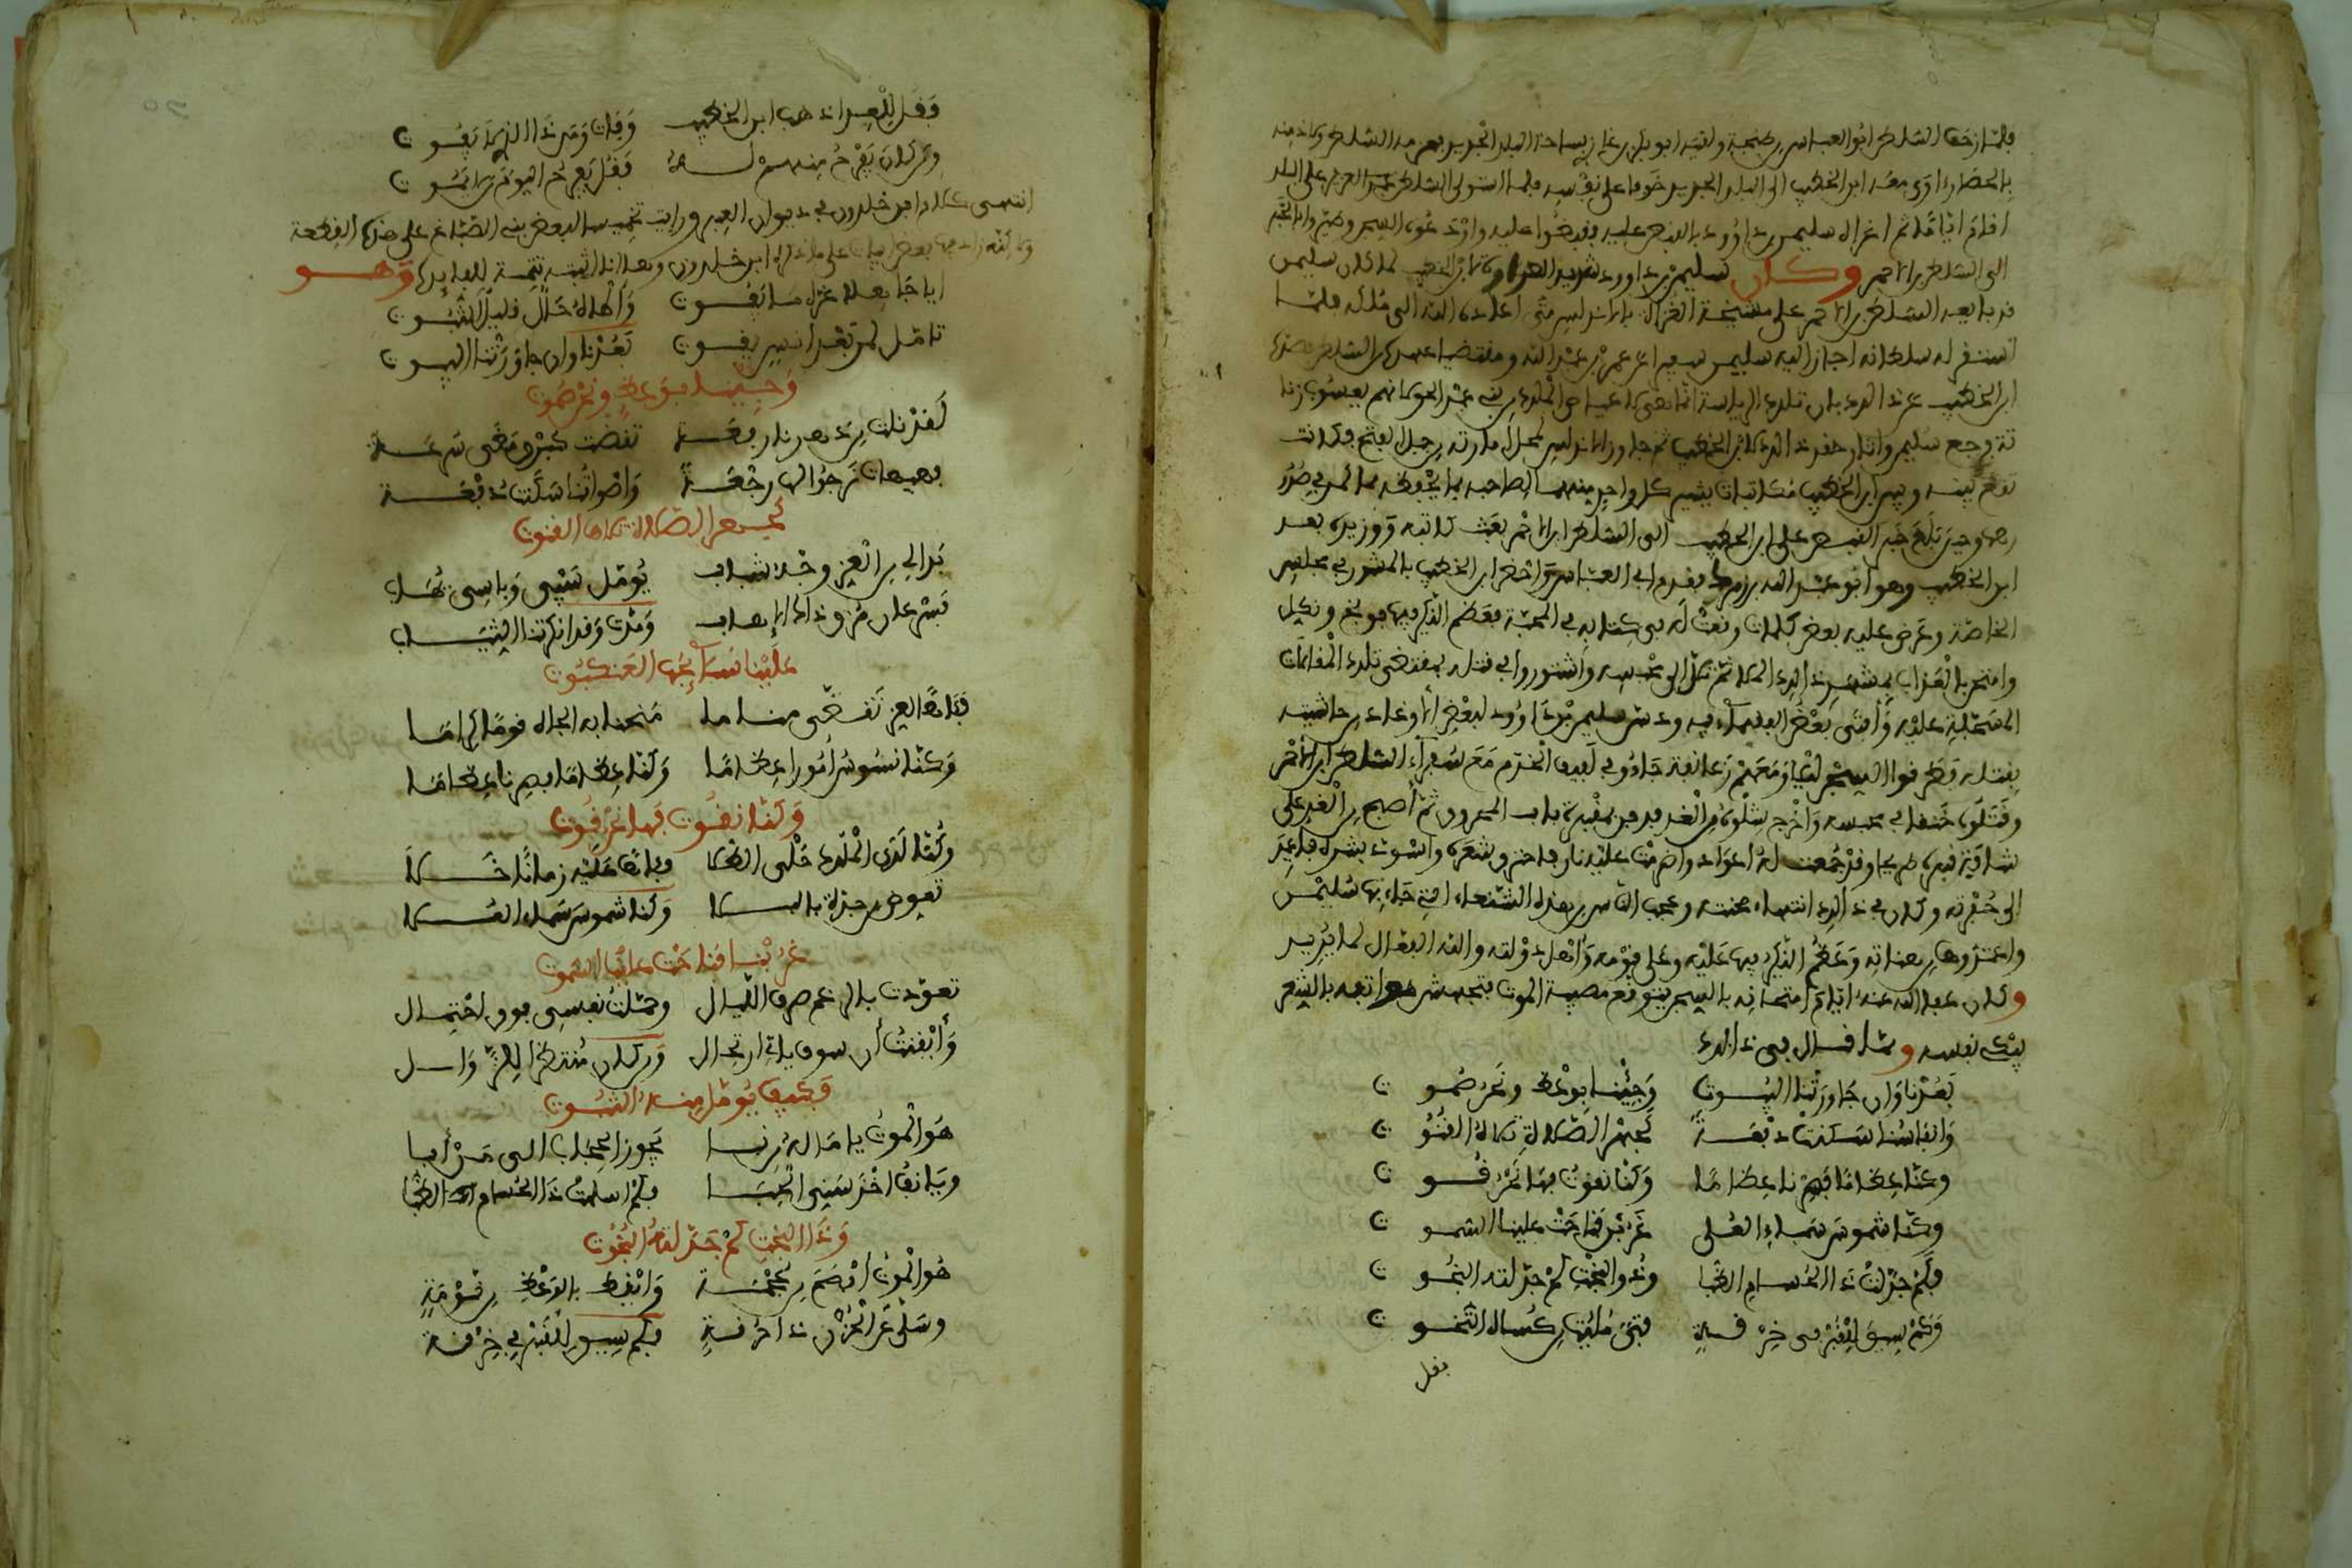 فلما زحف السلطان ابو العباس من طنجة ولقيه ابو بكر بن غازي بساحة البلد الجديد فهزمه السلطان ولاذ منه
بالحصار اوى معه ابن الخطيب الى البلد الجديد خوفا على نفسه فلما استولى السلطان على البلد
اقام اياما ثم اغراه سليمن بن داوود بالقبض عليه فقبضوا عليه واودعوه السجن وطيروا بالخبر
الى السلطان ابن الاحمر وكان سليمن بن داوود شديد العداوة لابن الخطيب لما كان سليمن
قد بايعه السلطان ابن الاحمر على مشيخة الغزاة بالاندلس متى اعاده الله الى ملكه فلما
استقر له سلطانه اجاز اليه سليمن سفيرا عن عمر بن عبد الله ومقتضيا عهده من السلطان فصده
ابن الخطيب عن ذالك بان تلك الرياسة انما هي لاعياص الملك من بني عبد الحق لانهم يعسوب زنا
تة فرجع سليمن واثار حقد ذالك لابن الخطيب ثم جاور الاندلس لمحل امارته من جبل الفتح فكانت
تقع بينه وبين ابن الخطيب مكاتبات ينفس كل واحد منهما لصاحبه بما يحفظه مما كمن في صدو
رهما وحين بلغ خبر القبض على ابن الخطيب الى السلطان ابن الاحمر بعث كاتبه ووزيره بعد
ابن الخطيب وهو ابو عبد الله بن زمرك فقدم على ابي العباس واحضر ابن الخطيب بالمشور في مجلس
الخاصة وعرض عليه بعض كلمات وقعت له في كتابه في المحبة فعظم النكير فيها فوبخ ونكل
وامتحن بالعذاب بمشهد ذالك الملا ثم تل الى محبسه واشتوروا في قتله بمقتضى تلك المقالات
المسجلة عليه وافتى بعض الفقهاء فيه ودس سليمن بن داوود لبعض الاوغاد من حاشيته
بقتله فطرقوا السجن ليلا ومعهم زعانفة جاءو في لفيف الخدم مع سفراء السلطان ابن الاحمر
وقتلوه خنقا في محبسه واخرج شلوه من الغد فدفن بمقبرة باب المحروق ثم اصبح من الغد على
شافة قبره طريحا وقد جمعت له اعواد واضرمت عليه نار فاحترق شعره واسود بشره فاعيد
الى حفرته وكان في ذالك انتهاء محنته وعجب الناس من هذه الشنعاء التي جاء بها سليمن
واعتدوها من هناته وعظم النكير فيها عليه وعلى قومه واهل دولته والله الفعال لما يريد
وكان عفا الله عنه ايام امتحانه بالسجن يتوقع مصيبة الموت فتجهش هواتفه بالشعر
يبكي نفسه ومما قال في ذالك
بعدنا وان جاورتنا البيوت وجئنا بوعظ ونحن صمو ت
وانفاسنا سكنت دفعة كجهر الصلاة تلاه القنو ت
وكنا عظاما فصرنا عظاما وكنا نقوت فها نحن قو ت
وكنا شموس سماء العلى غربن فناحت علينا السمو ت
فكم جدلت ذا الحسام الظبا وذو البخت كم جدلته البخو ت
وكم سيق للقبر في خرقة فتى ملئت من كساه التخو ت
فقل
فقل للعدا ذهب ابن الخطيب وفات ومن ذا الذي لا يفو ت
ومن كان يفرح منهم له فقل يفرح اليوم من لا يمو ت
انتهى كلام ابن خلدون في ديوان العبر ورايت تخميسا لبعض بني الصباغ على هذه القطعة
ولكنه زاد فيها بعض ابيات على ما ذكره ابن خلدون وها انا اثبته تتمة للفايدة وهو
ايا جاهلا غره ما يفوت والهاه حال قليل الثبوت
تامل لمن بعد انس يفوت بعدنا وان جاورتنا البيوت
وجئنا بوعظ ونحن صموت
لقد نلت من دهرنا رفعة تقضت كبرق مضى سرعة
فهيهات نرجو لها رجعة واصواتنا سكنت دفعة
كجهر الصلاة تلاها القنوت
بدا لي من العز وجه شباب يؤمل سيبي وباسي يهاب
فسرعان مزق ذاك الاهاب ومدت وقد انكرتنا الثياب
علينا نسايجها العنكبوت
فاها لعز تقضى مناما منحنا به الجاه قوما كراما
وكنا نسوس امورا عظاما وكنا عظاما فصرنا عظاما
وكنا نقوت فها نحن قوت
وكنا لدى الملك حلي الطلا فاها عليه زمانا خلا
تعوض من جدة بالبلا وكنا شموس سماء العلا
غربنا فناحت علينا السموت
تعودت بالرغم صرف الليال وحملت نفسي فوق احتمال
وايقنت ان سوف ياتي ارتحال ومن كان منتظرا للزوال
فكيف يؤمل منه الثبوت
هو الموت يا ما له من نبا يجوز الحجاب الى من ابا
ويالف اخذ سني الحبا فكم اسلمت ذا الحسام الظبا
وذا البخت كم جدلته البخوت
هو الموت افصح من عجمة وايقظ بالوعظ من نومة
وسلى عن الحزن ذا حرقة فكم سيق للقبر في خرقة